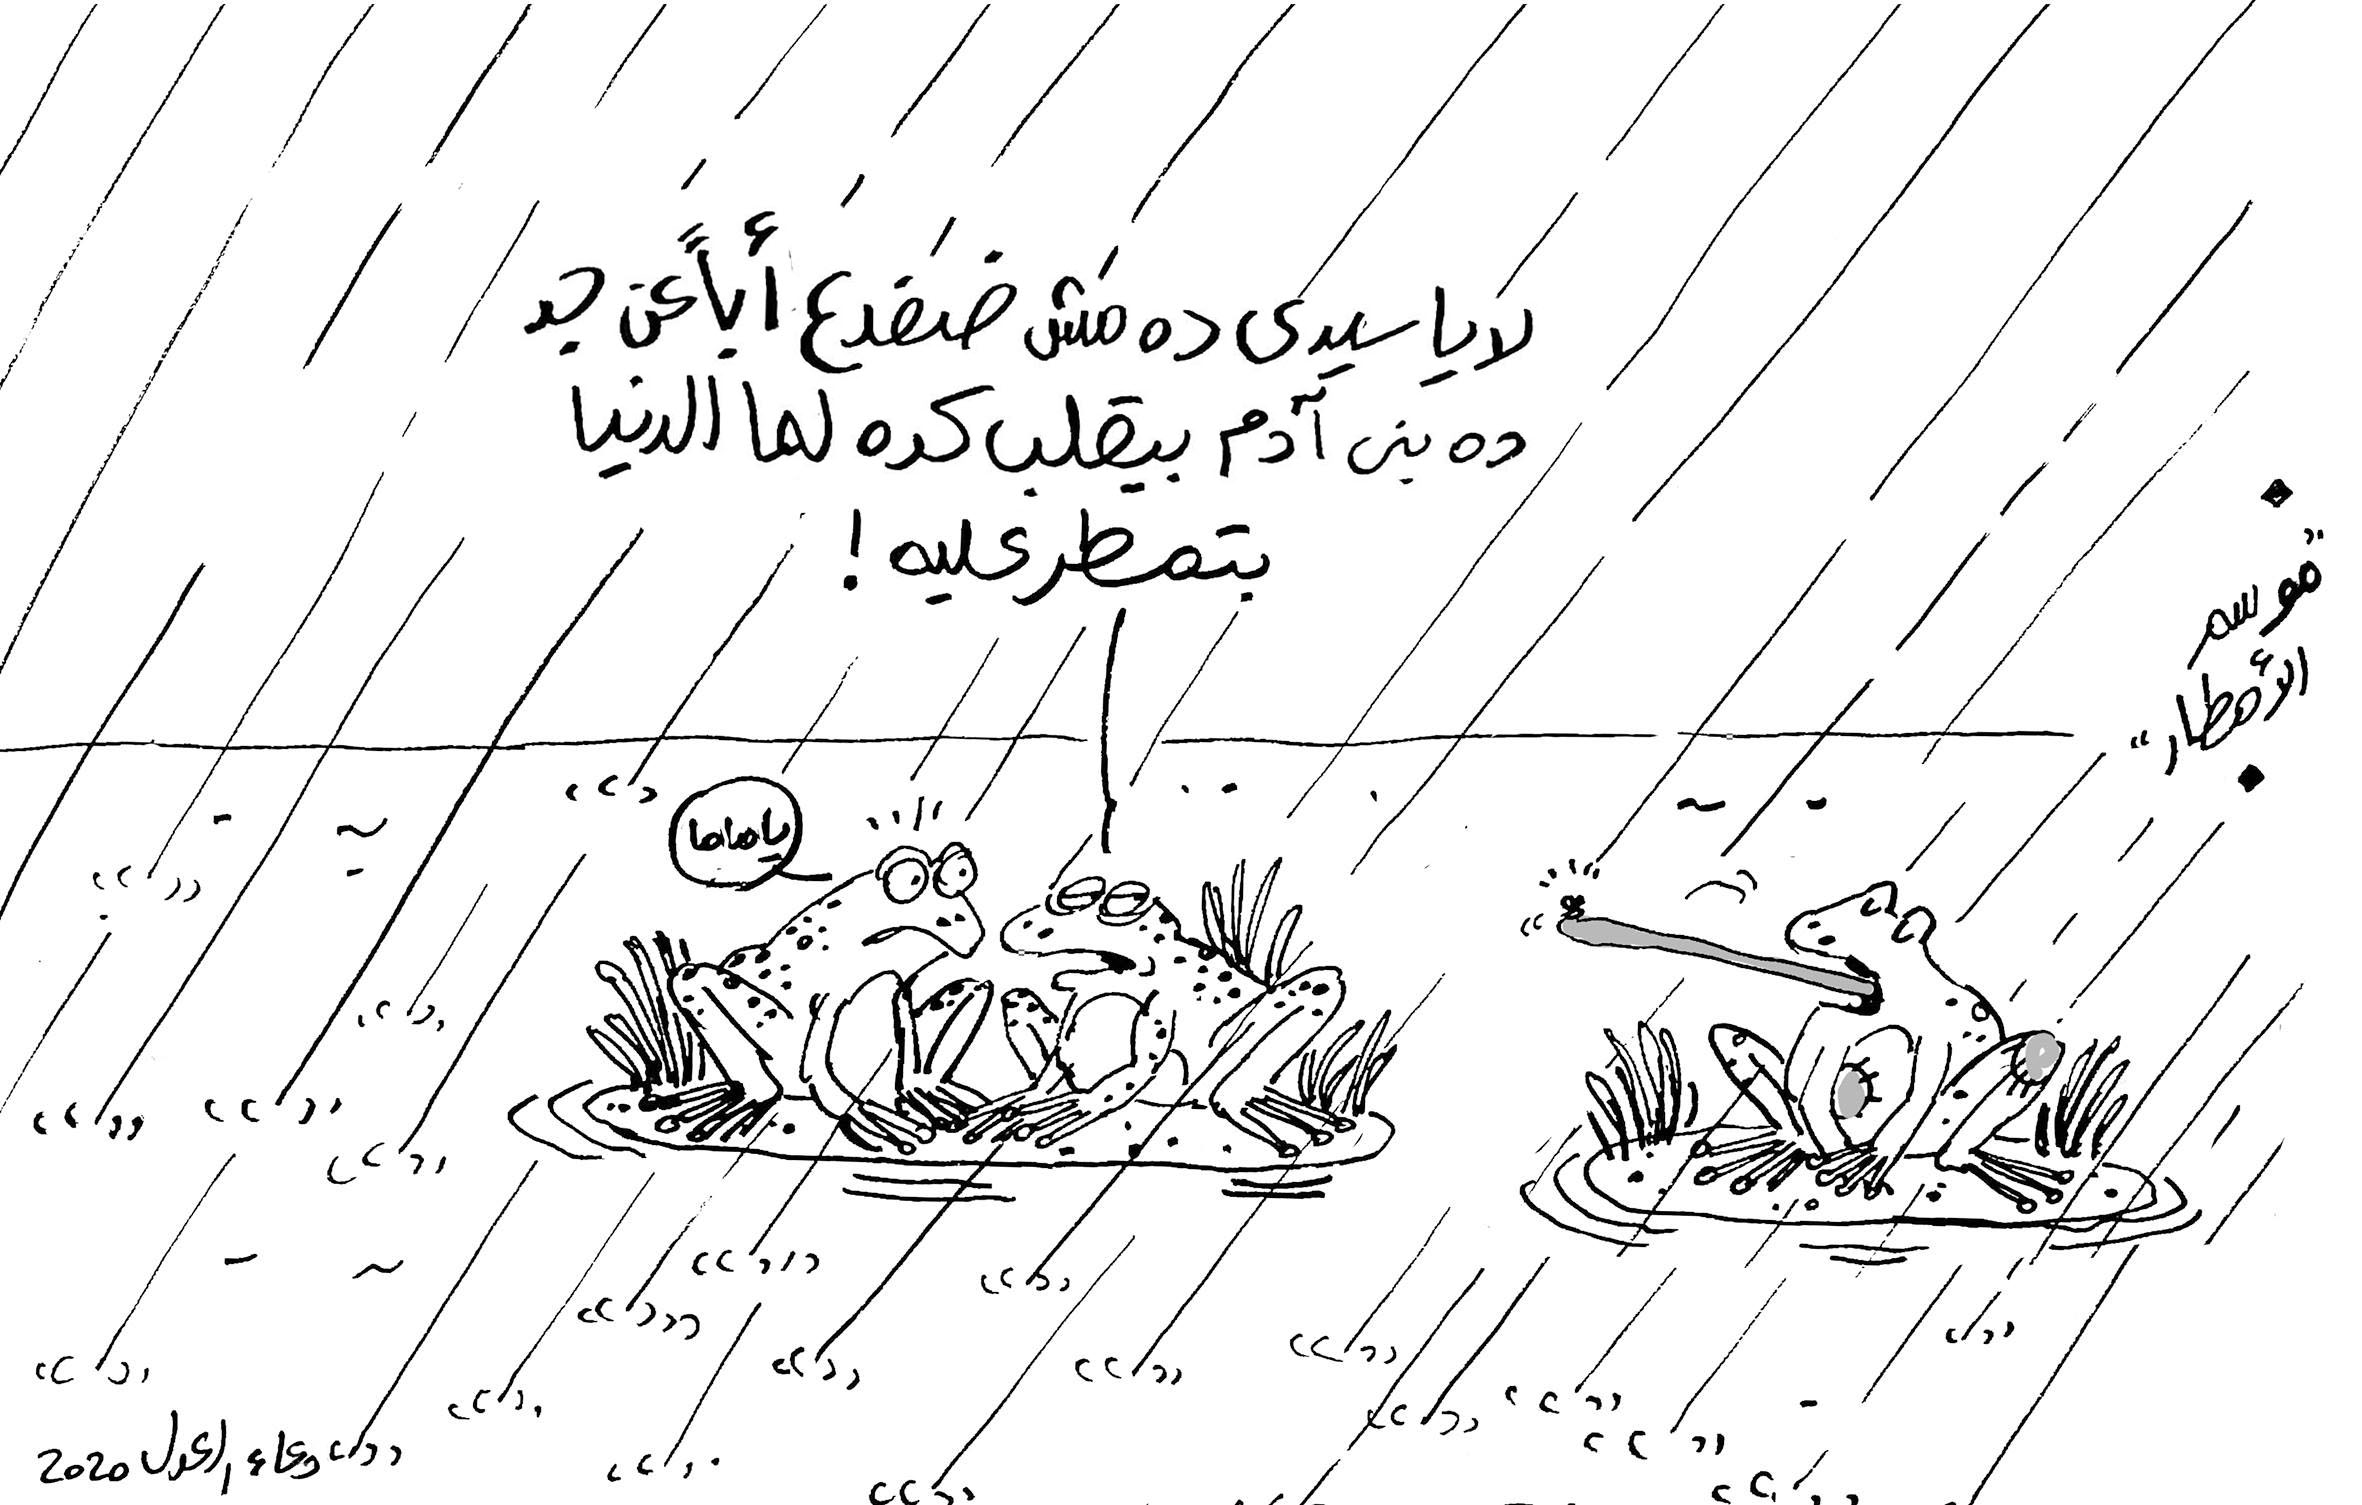 لا يا سيدى ده مش ضفدع أباً عن جد
ده بنى آدم بيقلب كده لما الدنيا
بتمطر عليه !
يا ماما
"موسم
الأمطار"
دعاء العدل 2020